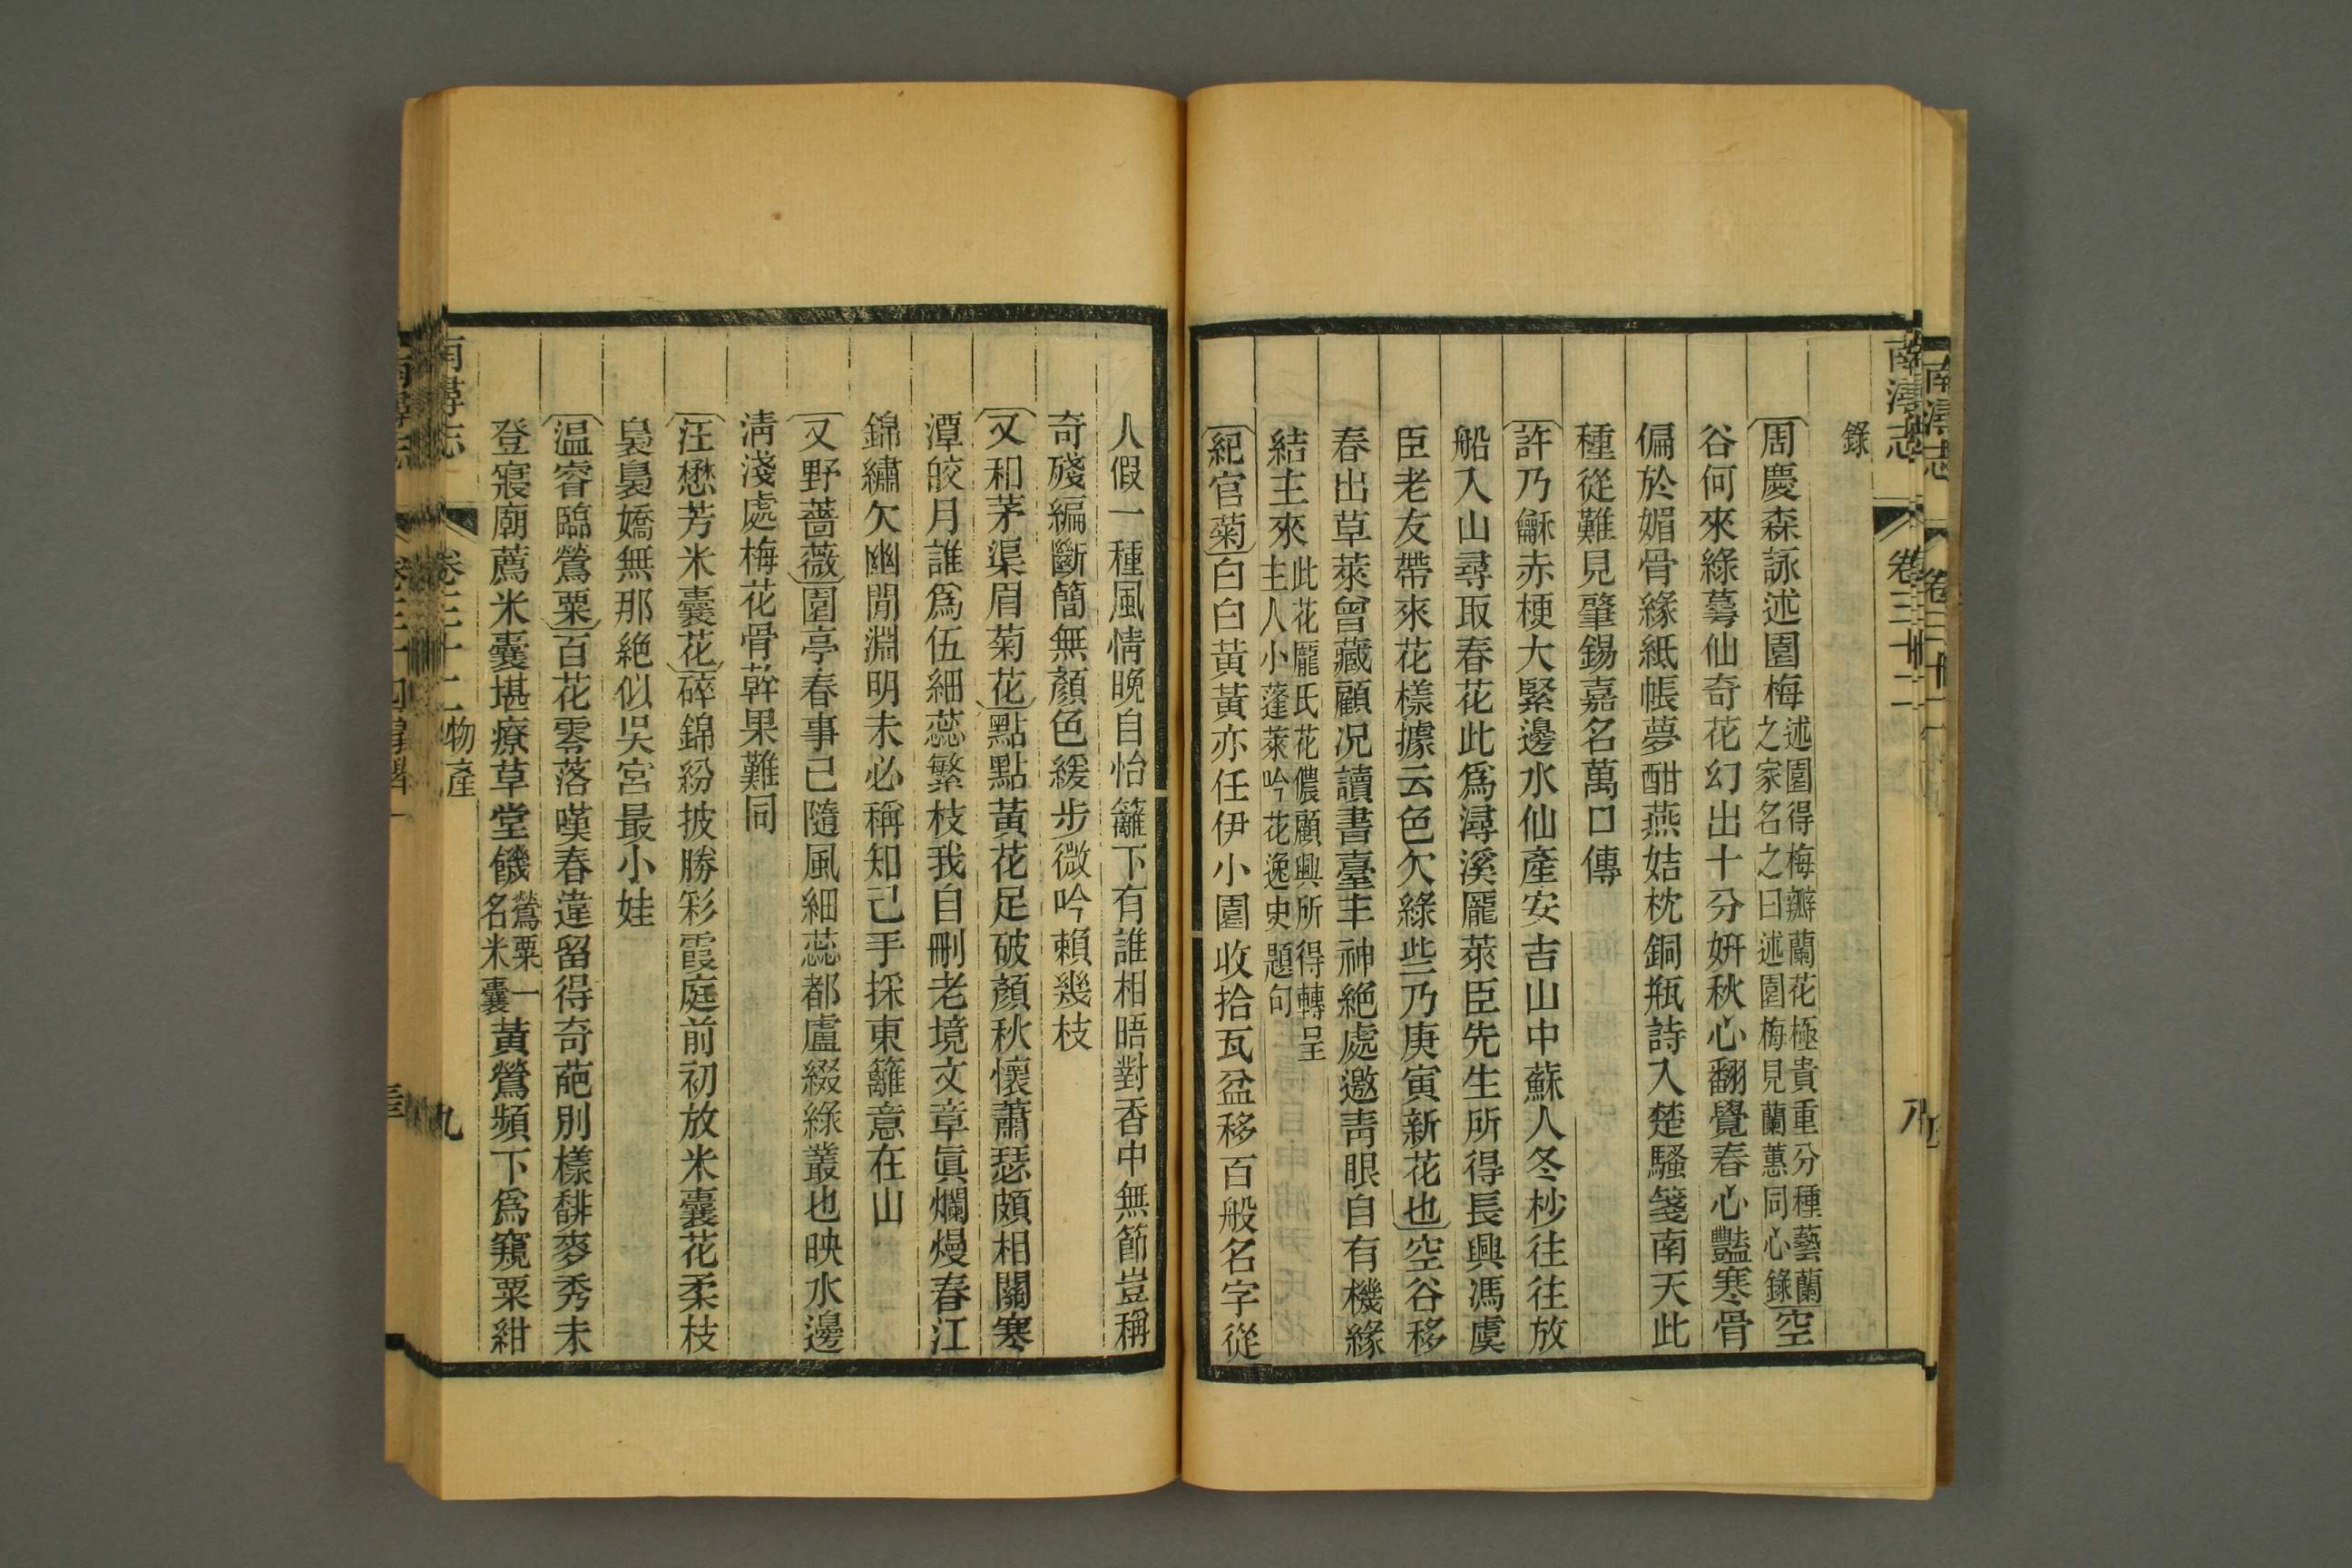 南潯志
卷三十二
八
錄
周慶森詠述園梅述園得梅瓣蘭花極貴重分種藝蘭之家名之曰述園梅見蘭蕙同心錄空
谷何來綠萼仙奇花幻出十分妍秋心翻覺春心豔寒骨
偏於媚骨緣紙帳夢酣燕姞枕銅瓶詩入楚騷箋南天此
種從難見肇錫嘉名萬口傳
許乃龢赤梗大緊邊水仙產安吉山中蘇人冬杪往往放
船入山尋取春花此爲潯溪龎萊臣先生所得長興馮虞
臣老友帶來花樣據云色欠綠些乃庚寅新花也空谷移
春出草萊曾藏顧况讀書臺丰神絕處邀靑眼自有機緣
結主來此花龎氏花儂顧興所得轉呈主人小蓬萊吟花逸史題句
紀官菊白白黃黃亦任伊小園收拾瓦盆移百般名字從
人假一種風情晚自怡籬下有誰相晤對香中無節豈稱
奇殘編斷簡無顏色緩步微吟賴幾枝
又和茅渠眉菊花點點黃花足破顏秋懷蕭瑟頗相關寒
潭皎月誰爲伍細蕊繁枝我自刪老境文章眞爛熳春江
錦繡欠幽閒淵明未必稱知己手採東籬意在山
又野薔薇園亭春事已隨風細蕊都盧綴綠叢也映水邊
淸淺處梅花骨幹果難同
汪懋芳米囊花碎錦紛披勝彩霞庭前初放米囊花柔枝
裊裊嬌無那絕似吳宮最小娃
温睿臨鶯粟百花零落嘆春違留得奇葩別樣馡麥秀未
登寢廟薦米囊堪療草堂饑鶯粟一名米囊黃鶯頻下爲窺粟紺
南潯志
卷三十二
物產
九